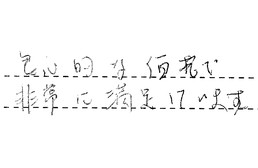 良心的な値段で
非常に満足しています